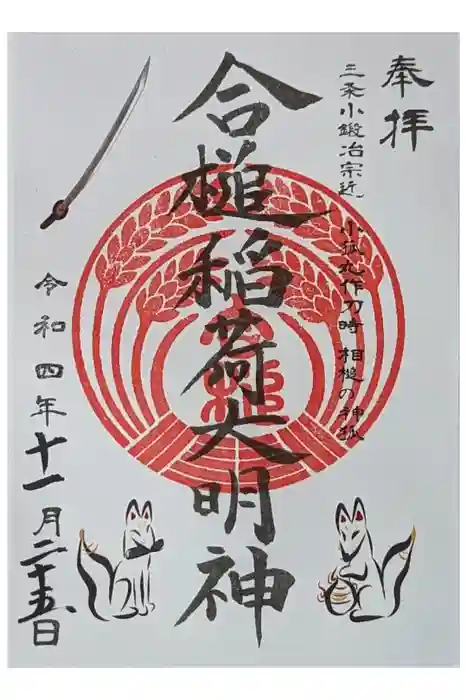 奉拝
三条小鍛冶宗近
小狐丸作刀時 相槌の神狐
合槌稲荷大明神
令和四年十一月二十五日